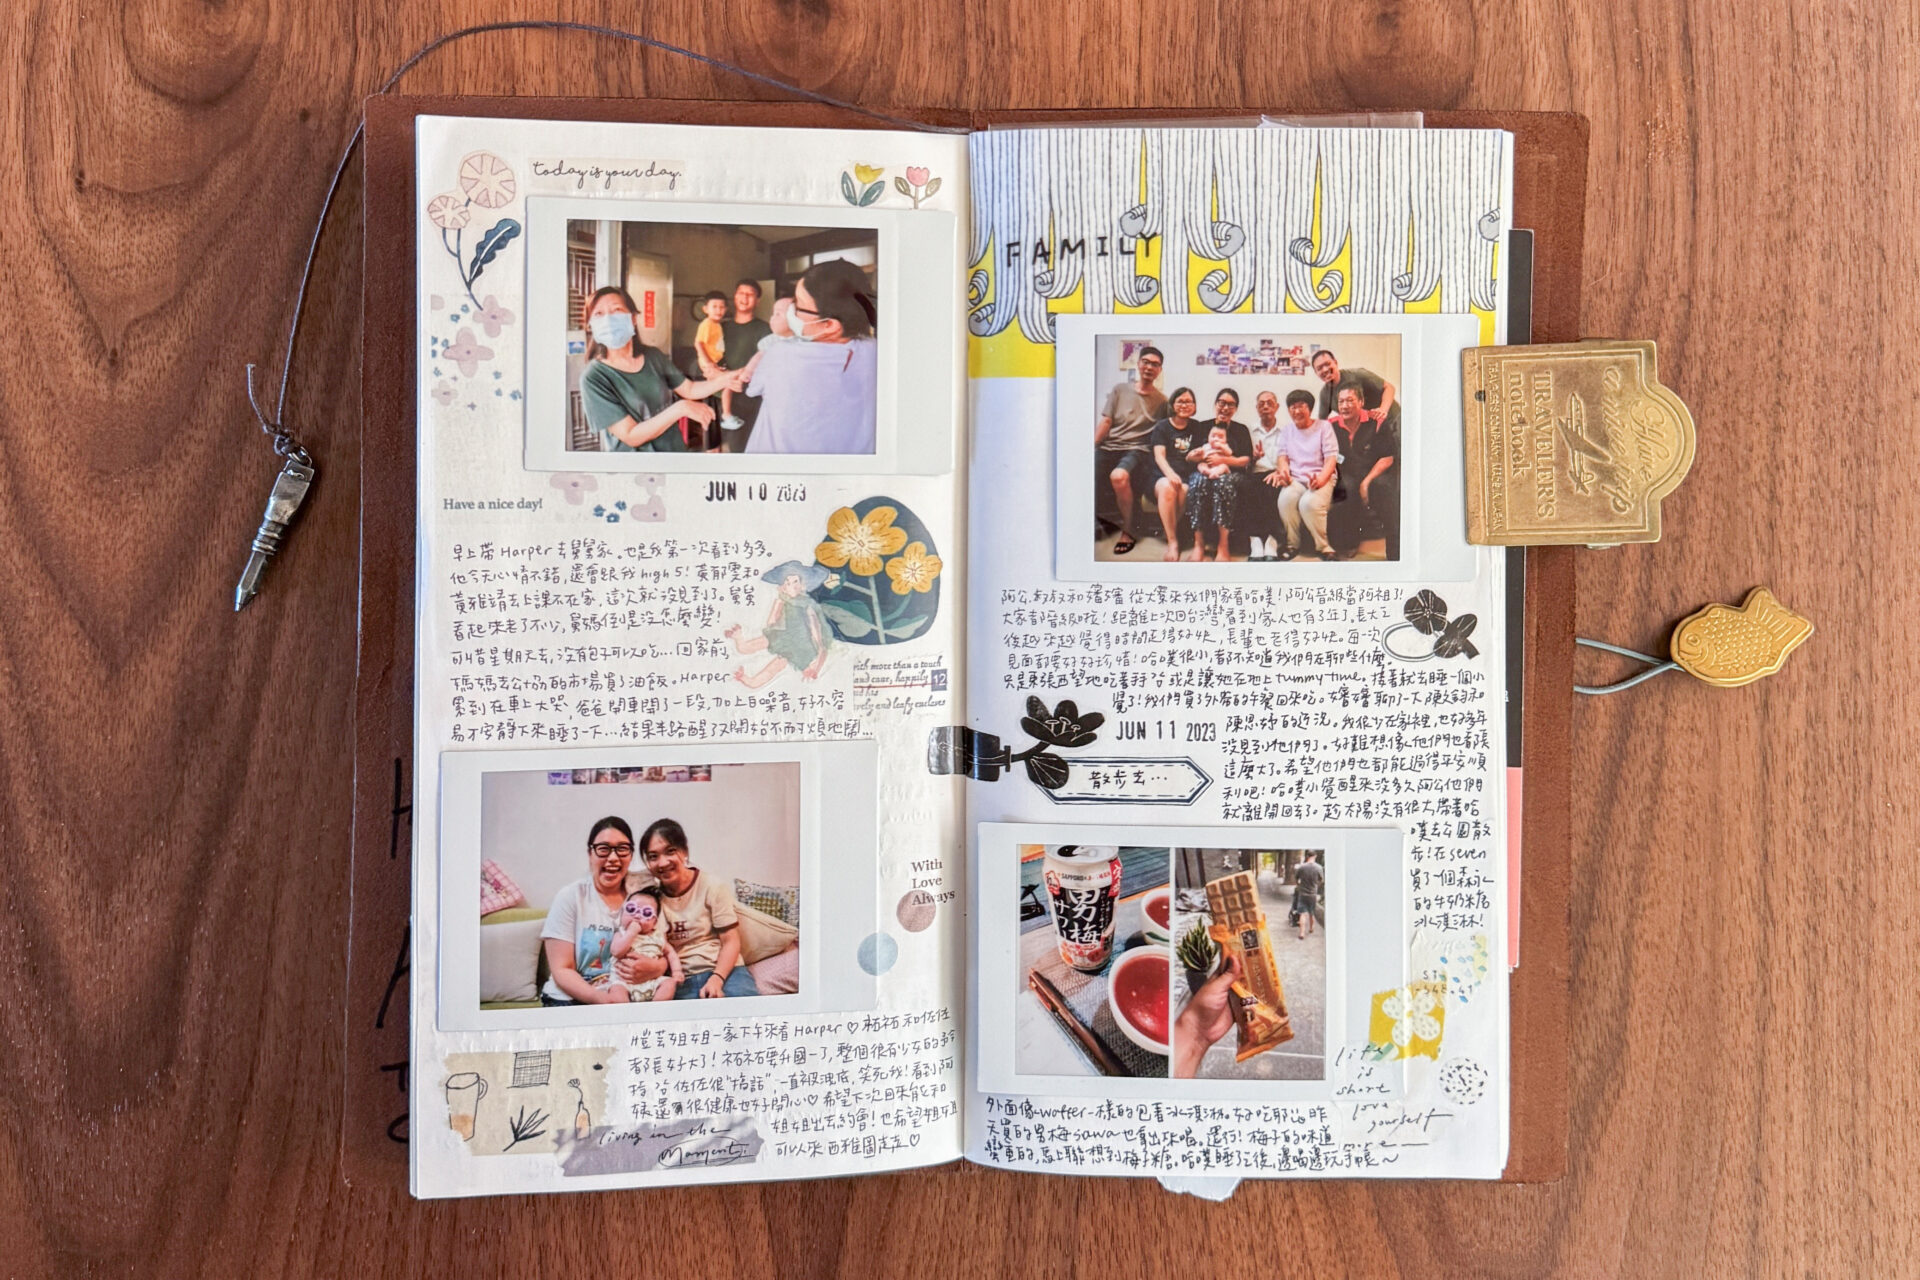 today is your day.
JUN 10 2023
Have a nice day!
早上帶 Harper 去舅舅家。也是我第一次看到多多。
他今天心情不錯,還會跟我 high 5! 黃郁雯和
黃雅靖去上課不在家,這次就沒見到了。舅舅
看起來老了不少,舅媽倒是沒怎麼變!
可惜星期天去,沒有包子可以吃...回家前,
媽媽去公協的市場買了油飯。Harper
累到在車上大哭,爸爸開車開了一段,加上白噪音,好不容
易才安靜下來睡了一下...結果半路醒了又開始不耐煩地鬧...
with more than a touch
and care, happily 12
and leafy enclaves
With
Love
Always
愷芸姐姐一家下午來看 Harper ♡ 祐祐和佐佐
都長好大了! 祐祐要升國一了,整個很有少女的
佐佐很"搞話",一直被洩底,笑死我! 看到阿
姨還有很健康也好開心♡ 希望下次回來能和
姐姐出去約會! 也希望姐姐
可以來西雅圖走走♡
living in the
Moment.
FAMILY
阿公、叔叔和嬸嬸從大寮來我們家看哈噗! 阿公晉級當阿祖了!
大家都晉級啦! 距離上次回台灣,看到家人也有3年了。長大之
後越來越覺得時間走得好快,長輩也老得好快。每一次
見面都要好好珍惜! 哈噗很小,都不知道我們在聊些什麼。
只是東張西望地吃著手手或是讓她在地上 tummy time。接著就去睡一個小
覺了! 我們買了外帶的午餐回來吃。嬸嬸聊了一下陳文鈞和
JUN 11 2023
陳思妤的近況。我很少在家裡,也好多年
沒見到他們了。好難想像他們也都長
這麼大了。希望他們也都能過得平安順
利吧! 哈噗小覺醒來沒多久阿公他們
就離開回去了。趁太陽沒有很大,帶著哈
噗去公園散
步! 在 seven
買了一個森永
的牛奶糖
冰淇淋!
散步去...
SAPPORO
男梅
サワー
ST
-548.41
life
is
short
love
yourself
more
外面像 waffer 一樣的包著冰淇淋。好吃耶! 昨
天買的男梅 sawa 也拿出來喝。還行! 梅子的味道
蠻重的,馬上聯想到梅子糖。哈噗睡了之後,邊喝邊玩手帳~
Have
a nice trip
TRAVELER'S
notebook
TRAVELER'S COMPANY, MADE in JAPAN